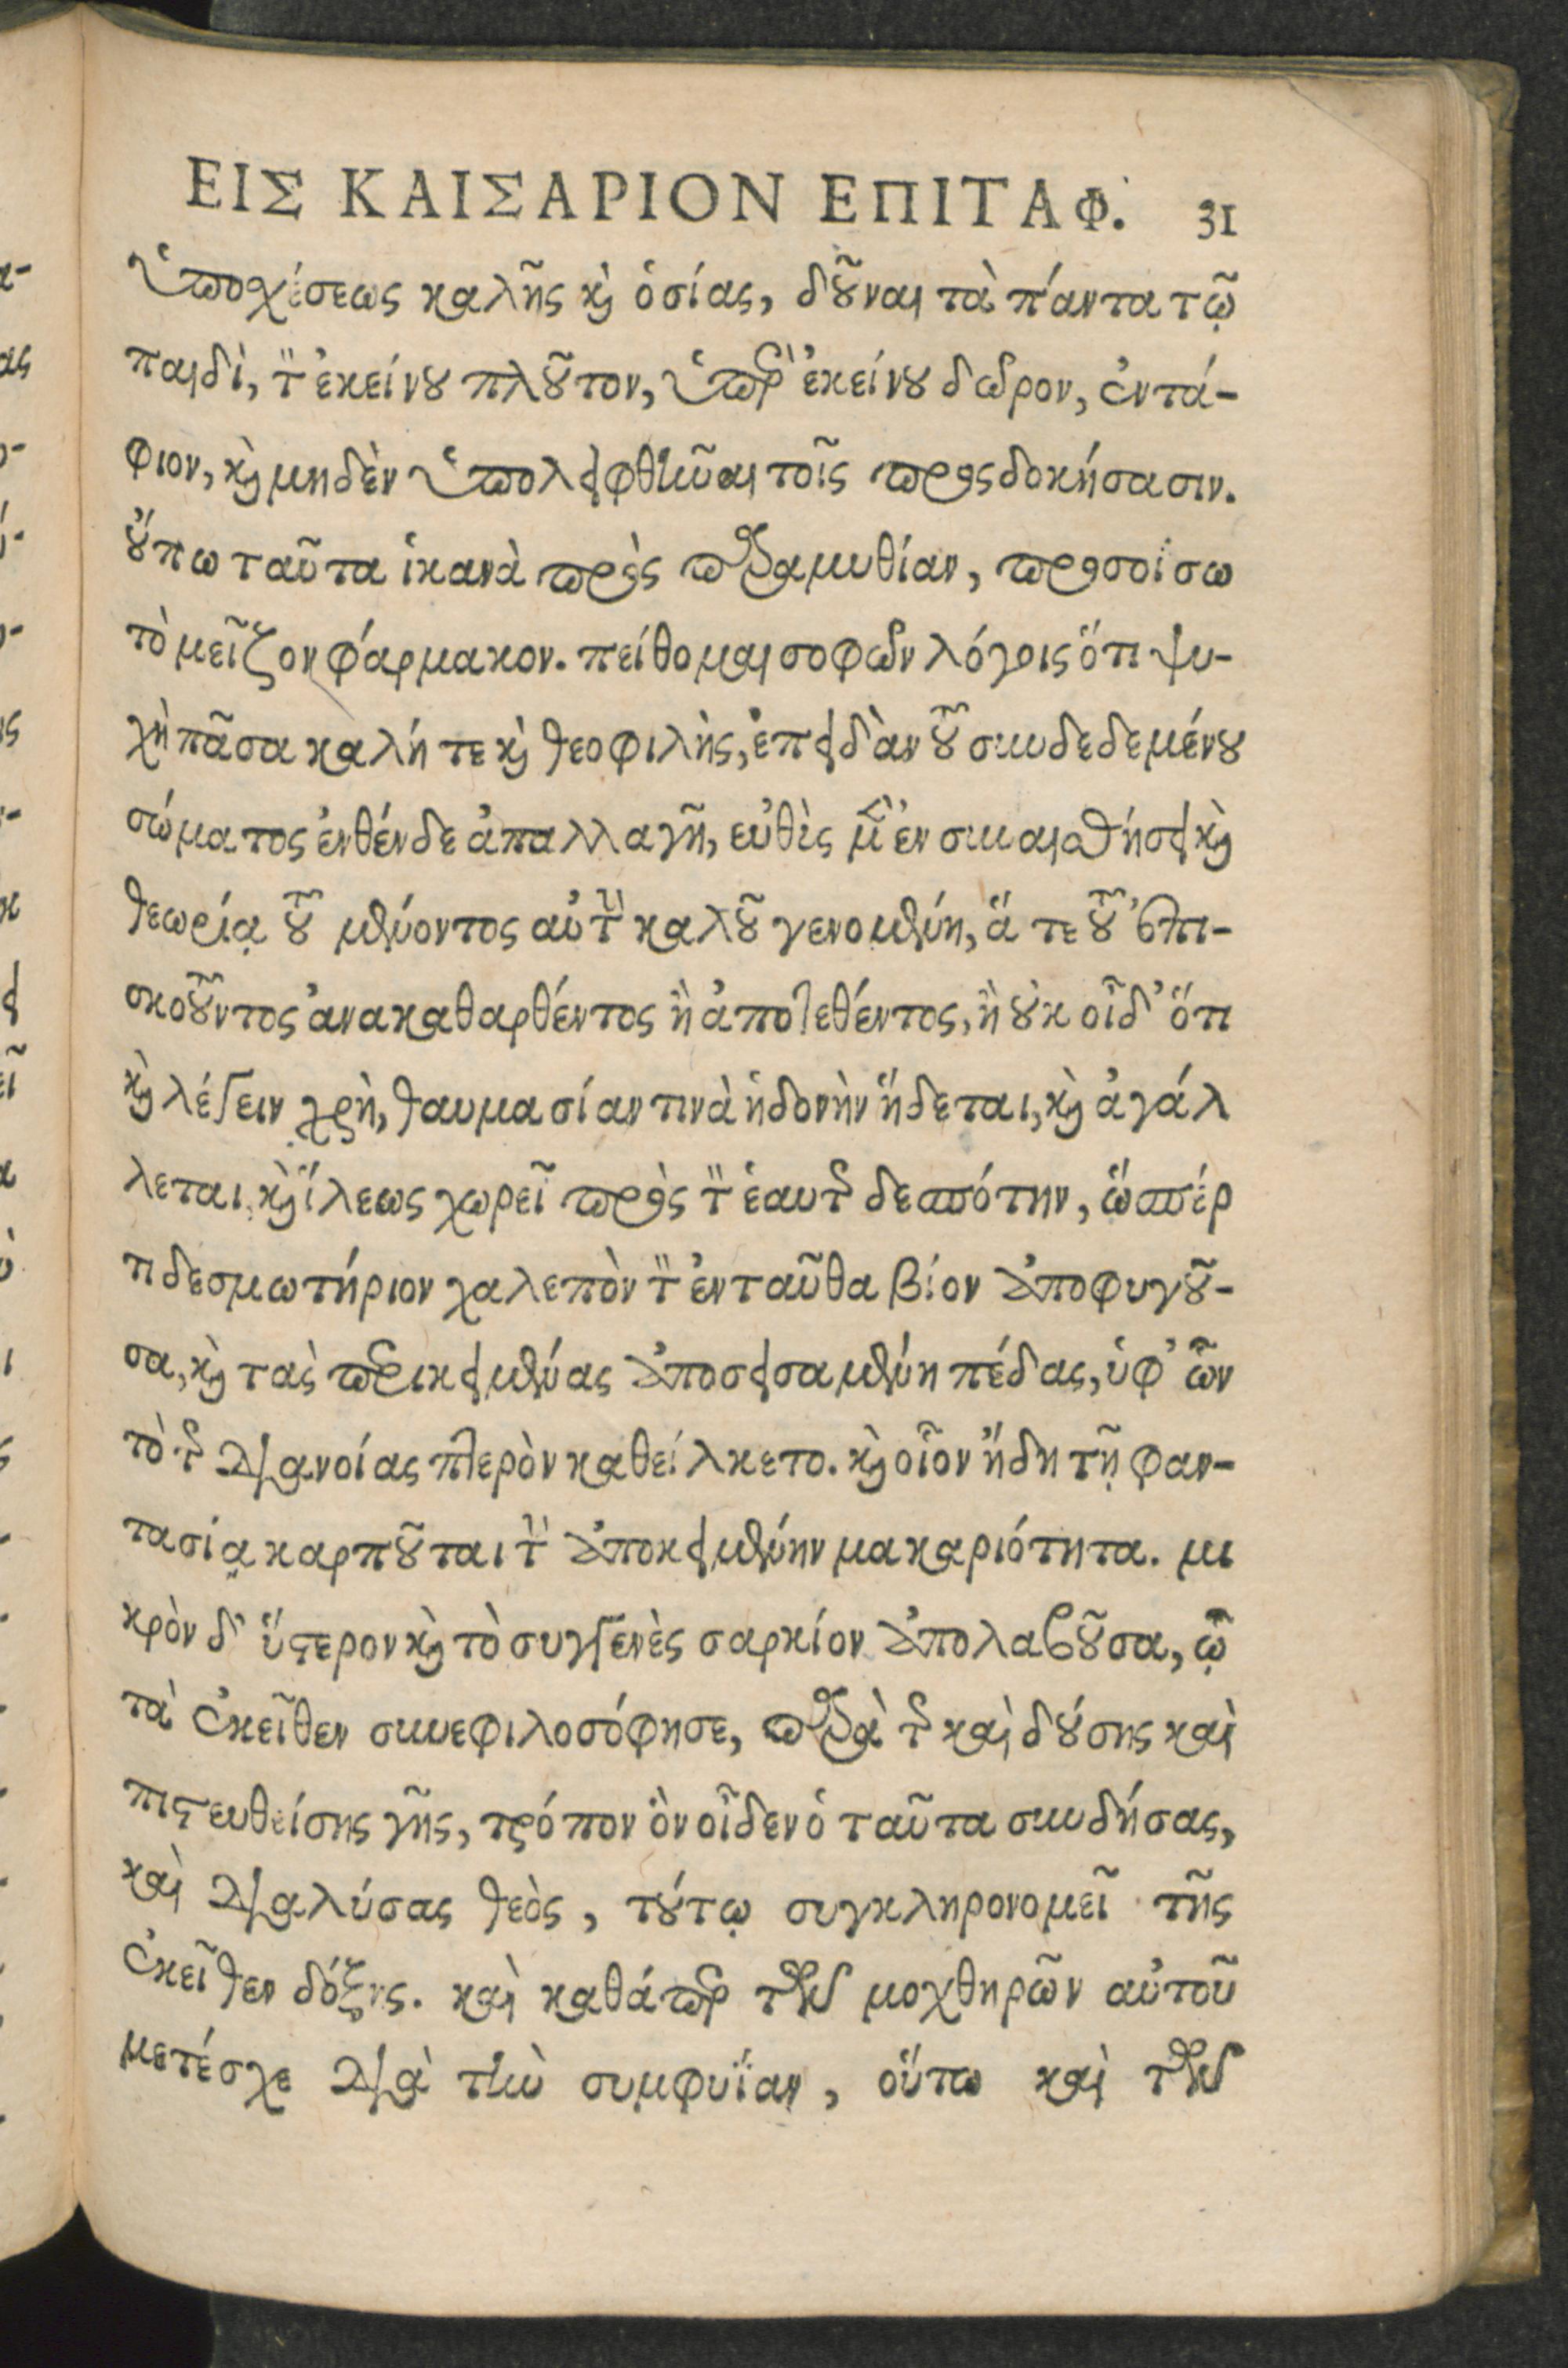 ΕΙΣ ΚΑΙΣΑΡΙΟΝ ΕΠΙΤΑΦ. 31
ὑποσχέσεως καλῆς καὶ ὁσίας, δοῦναι τὰ πάντα τῷ
παιδὶ, τὸν ἐκείνου πλοῦτον, ὑπὲρ ἐκείνου δῶρον, ἐντά-
φιον, καὶ μηδὲν ὑπολειφθῆναι τοῖς προςδοκήσασιν.
οὔπω ταῦτα ἱκανὰ πρὸς παραμυθίαν, προσοίσω
τὸ μεῖζον φάρμακον. πείθομαι σοφῶν λόγοις ὅτι ψυ-
χὴ πᾶσα καλή τε καὶ θεοφιλὴς, ἐπειδὰν τοῦ συνδεδεμένου
σώματος ἐνθένδε ἀπαλλαγῇ, εὐθὶς μὲν ἐν συναισθήσει καὶ
θεωρίᾳ τοῦ μένοντος αὐτὴν καλοῦ γενομένη, ἅ τε τοῦ ἐπι-
σκοτοῦντος ἀνακαθαρθέντος ἢ ἀποτεθέντος, ἢ οὐκ οἶδ᾽ ὅτι
καὶ λέγειν χρὴ, θαυμασίαν τινὰ ἡδονὴν ἥδεται, καὶ ἀγάλ
λεται, καὶ ἵλεως χωρεῖ πρὸς τὸν ἑαυτῆς δεσπότην, ὥσπέρ
τι δεσμωτήριον χαλεπὸν τὸν ἐνταῦθα βίον ἀποφυγοῦ-
σα, καὶ τὰς περικειμένας ἀποσεισαμένη πέδας, ὑφ᾽ ὧν
τὸ τῆς διανοίας πτερὸν καθείλκετο. καὶ οἷον ἤδη τῇ φαν-
τασίᾳ καρποῦται τὴν ἀποκειμένην μακαριότητα. μι
κρὸν δ᾽ ὕστερον καὶ τὸ συγγενὲς σαρκίον ἀπολαβοῦσα, ᾧ
τὰ ἐκεῖθεν συνεφιλοσόφησε, παρὰ τῆς καὶ δούσης καὶ
πιστευθείσης γῆς, τρόπον ὃν οἶδεν ὁ ταῦτα συνδήσας,
καὶ διαλύσας θεὸς, τούτῳ συγκληρονομεῖ τῆς
ἐκεῖθεν δόξης. καὶ καθάπερ τῶν μοχθηρῶν αὐτοῦ
μετέσχε διὰ τὴν συμφυΐαν, οὕτω καὶ τῶν